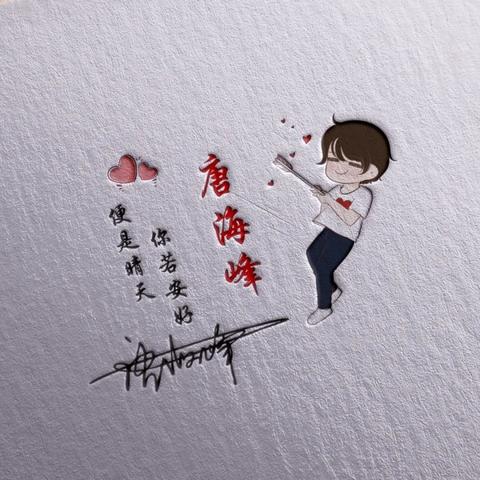 唐海峰
你若安好
便是晴天